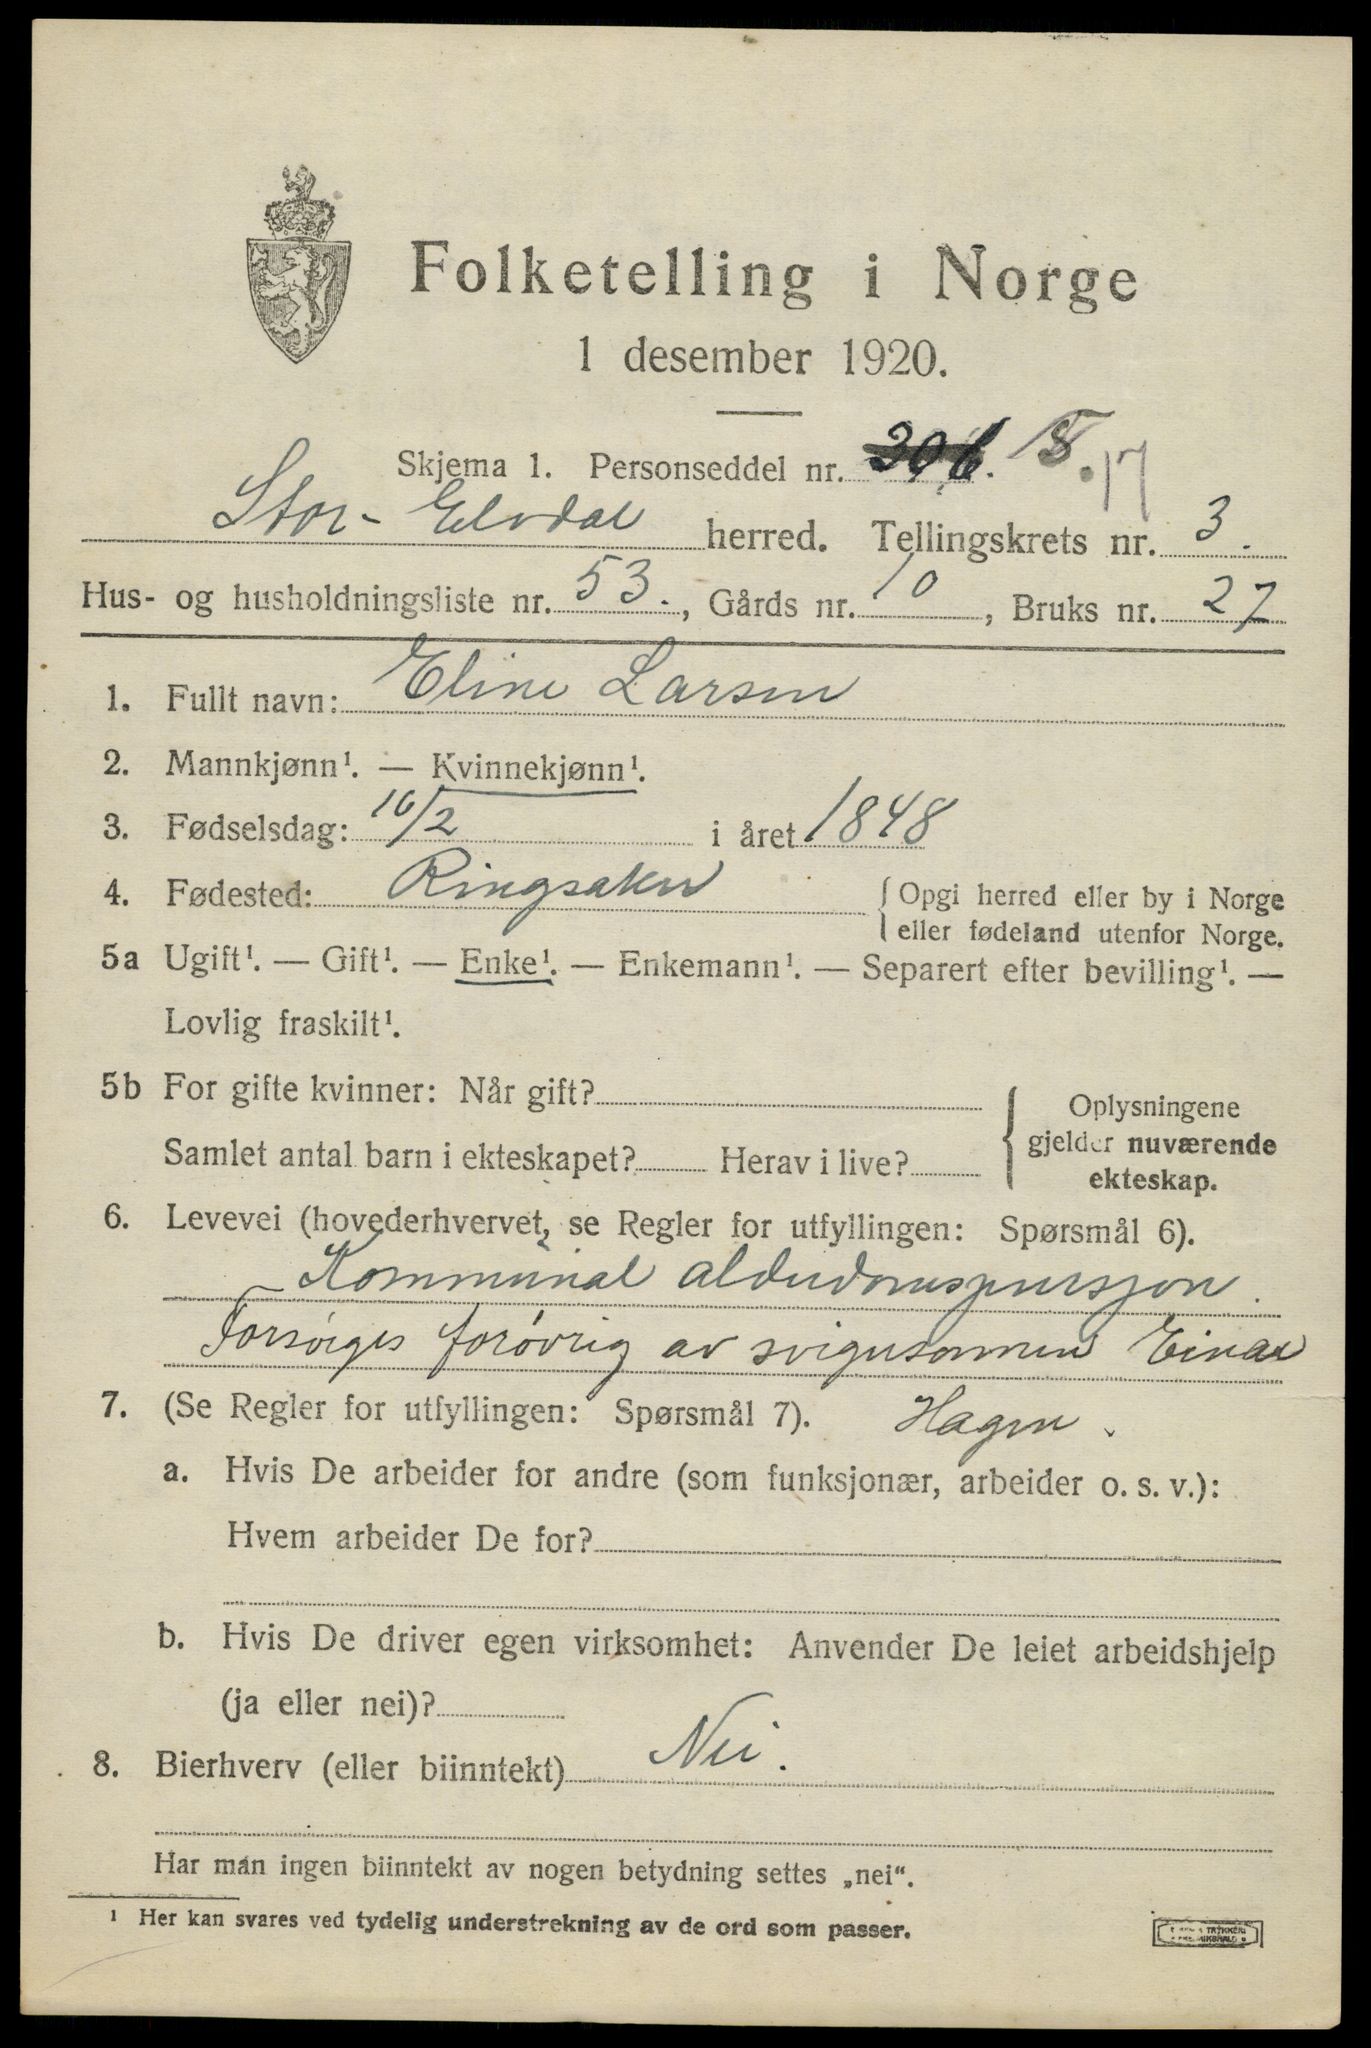 Folketelling i Norge
1 desember 1920.
Skjema 1. Personseddel nr. 8. 17
Stor-Elvdal herred. Tellingskrets nr. 3.
Hus- og husholdningsliste nr. 53., Gårds nr. 10, Bruks nr. 27
1. Fullt navn: Eline Larsen
2. Mannkjønn¹. — Kvinnekjønn¹.
3. Fødselsdag: 16/2 i året 1848
4. Fødested: Ringsaker { Opgi herred eller by i Norge
eller fødeland utenfor Norge.
5a Ugift¹. — Gift¹. — Enke¹. — Enkemann¹. — Separert efter bevilling¹. —
Lovlig fraskilt¹.
5b For gifte kvinner: Når gift?
Samlet antal barn i ekteskapet? Herav i live?
{ Oplysningene
gjelder nuværende
ekteskap.
6. Levevei (hovederhvervet, se Regler for utfyllingen: Spørsmål 6).
Kommunal alderdomspensjon.
Forsørges forøvrig av svigersønnen Einar
7. (Se Regler for utfyllingen: Spørsmål 7). Hagen.
a. Hvis De arbeider for andre (som funksjonær, arbeider o. s. v.):
Hvem arbeider De for?
b. Hvis De driver egen virksomhet: Anvender De leiet arbeidshjelp
(ja eller nei)?
8. Bierhverv (eller biinntekt) Nei.
Har man ingen biinntekt av nogen betydning settes „nei“.
¹ Her kan svares ved tydelig understrekning av de ord som passer.